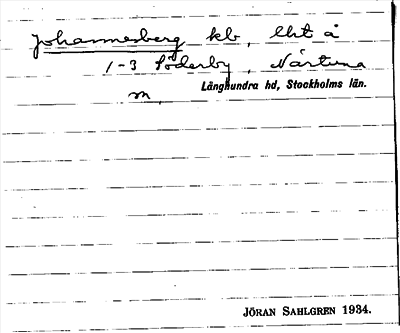 Johannesberg kb, lht å
1-3 Söderby, Närtuna
Långhundra hd, Stockholms län.
m,
JÖRAN SAHLGREN 1934.